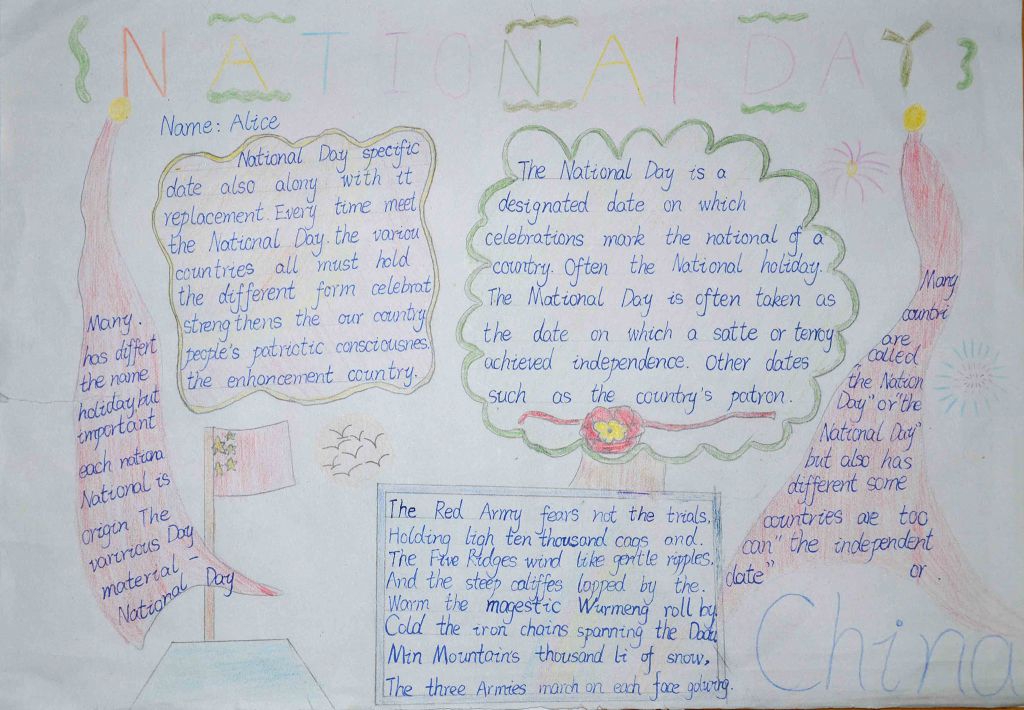 NATIONAL DAY
Name: Alice
National Day specific
date also along with it
replacement. Every time meet
the National Day. the variou
countries all must hold
the different form celebrat
strengthens the our country
people's patriotic consciousnes.
the enhancement country.
The National Day is a
designated date on which
celebrations mark the national of a
country. Often the National holiday.
The National Day is often taken as
the date on which a satte or terroy
achieved independence. Other dates
such as the country's patron.
Many.
has differt
the name
holiday,but
important
each nationa
National is
origin The
varirious Day
material -
National Day
Many
countri
are
called
"the Nation
Day" or "the
National Day"
but also has
different some
countries are too
can" the independent
date" or
The Red Army fears not the trials,
Holding ligh ten thousand cags and.
The Five Ridges wind like gentle ripples.
And the steep califfes lopped by the.
Warm the magestic Wurmeng roll by
Cold the iron chains spanning the
Min Mountain's thousand li of snow,
The three Armies march on each face
China